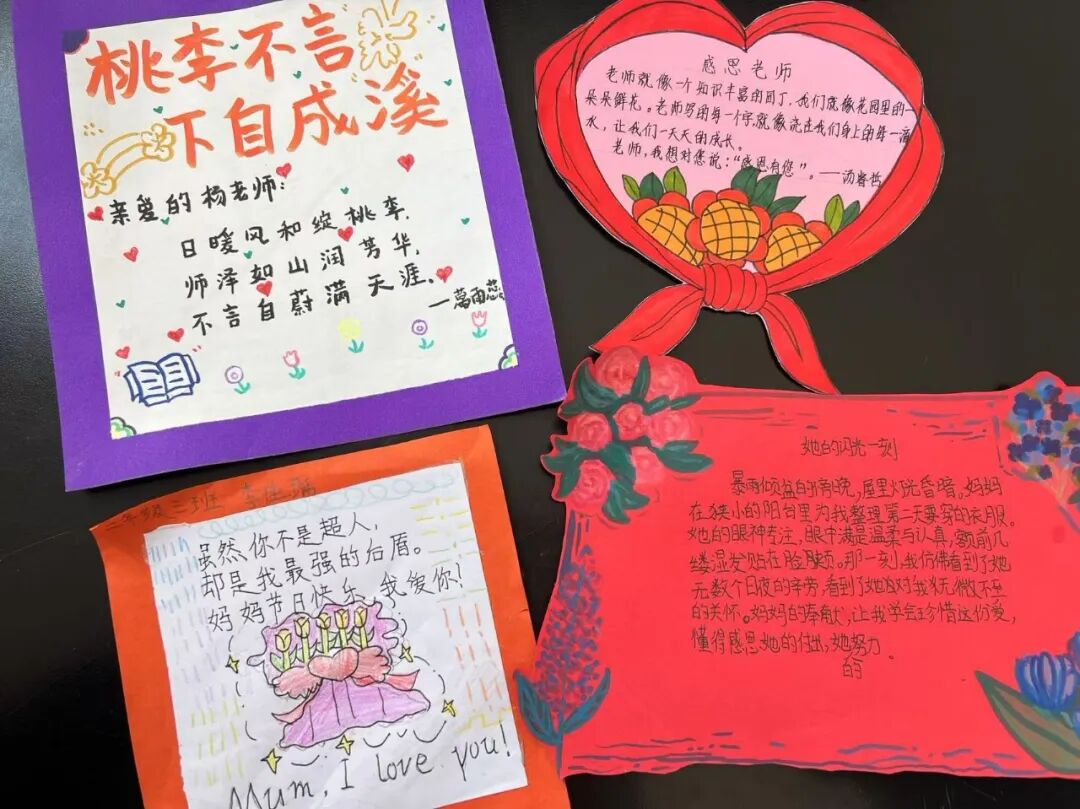 桃李不言
下自成溪
亲爱的杨老师:
日暖风和绽桃李,
师泽如山润芳华,
不言自蔚满天涯、
—葛雨蕊
感恩老师
老师就像一个知识丰富的园丁,我们就像花园里的一
朵朵鲜花。老师写的每一个字,就像浇在我们身上的每一滴
水,让我们一天天的成长。
老师,我想对您说:“感恩有您”。——汤睿哲
二年级 三班
虽然你不是超人,
却是我最强的后盾。
妈妈节日快乐,我爱你!
Mum, I love you!
她的闪光一刻
暴雨倾盆的傍晚,屋里灯光昏暗。妈妈
在狭小的阳台里为我整理第二天要穿的衣服。
她的眼神专注,眼中满是温柔与认真,额前几
缕湿发贴在脸颊。那一刻,我仿佛看到了她
无数个日夜的辛劳,看到了她对我无微不至
的关怀。妈妈的奉献,让我学会珍惜这份爱,
懂得感恩她的付出,她努力
的